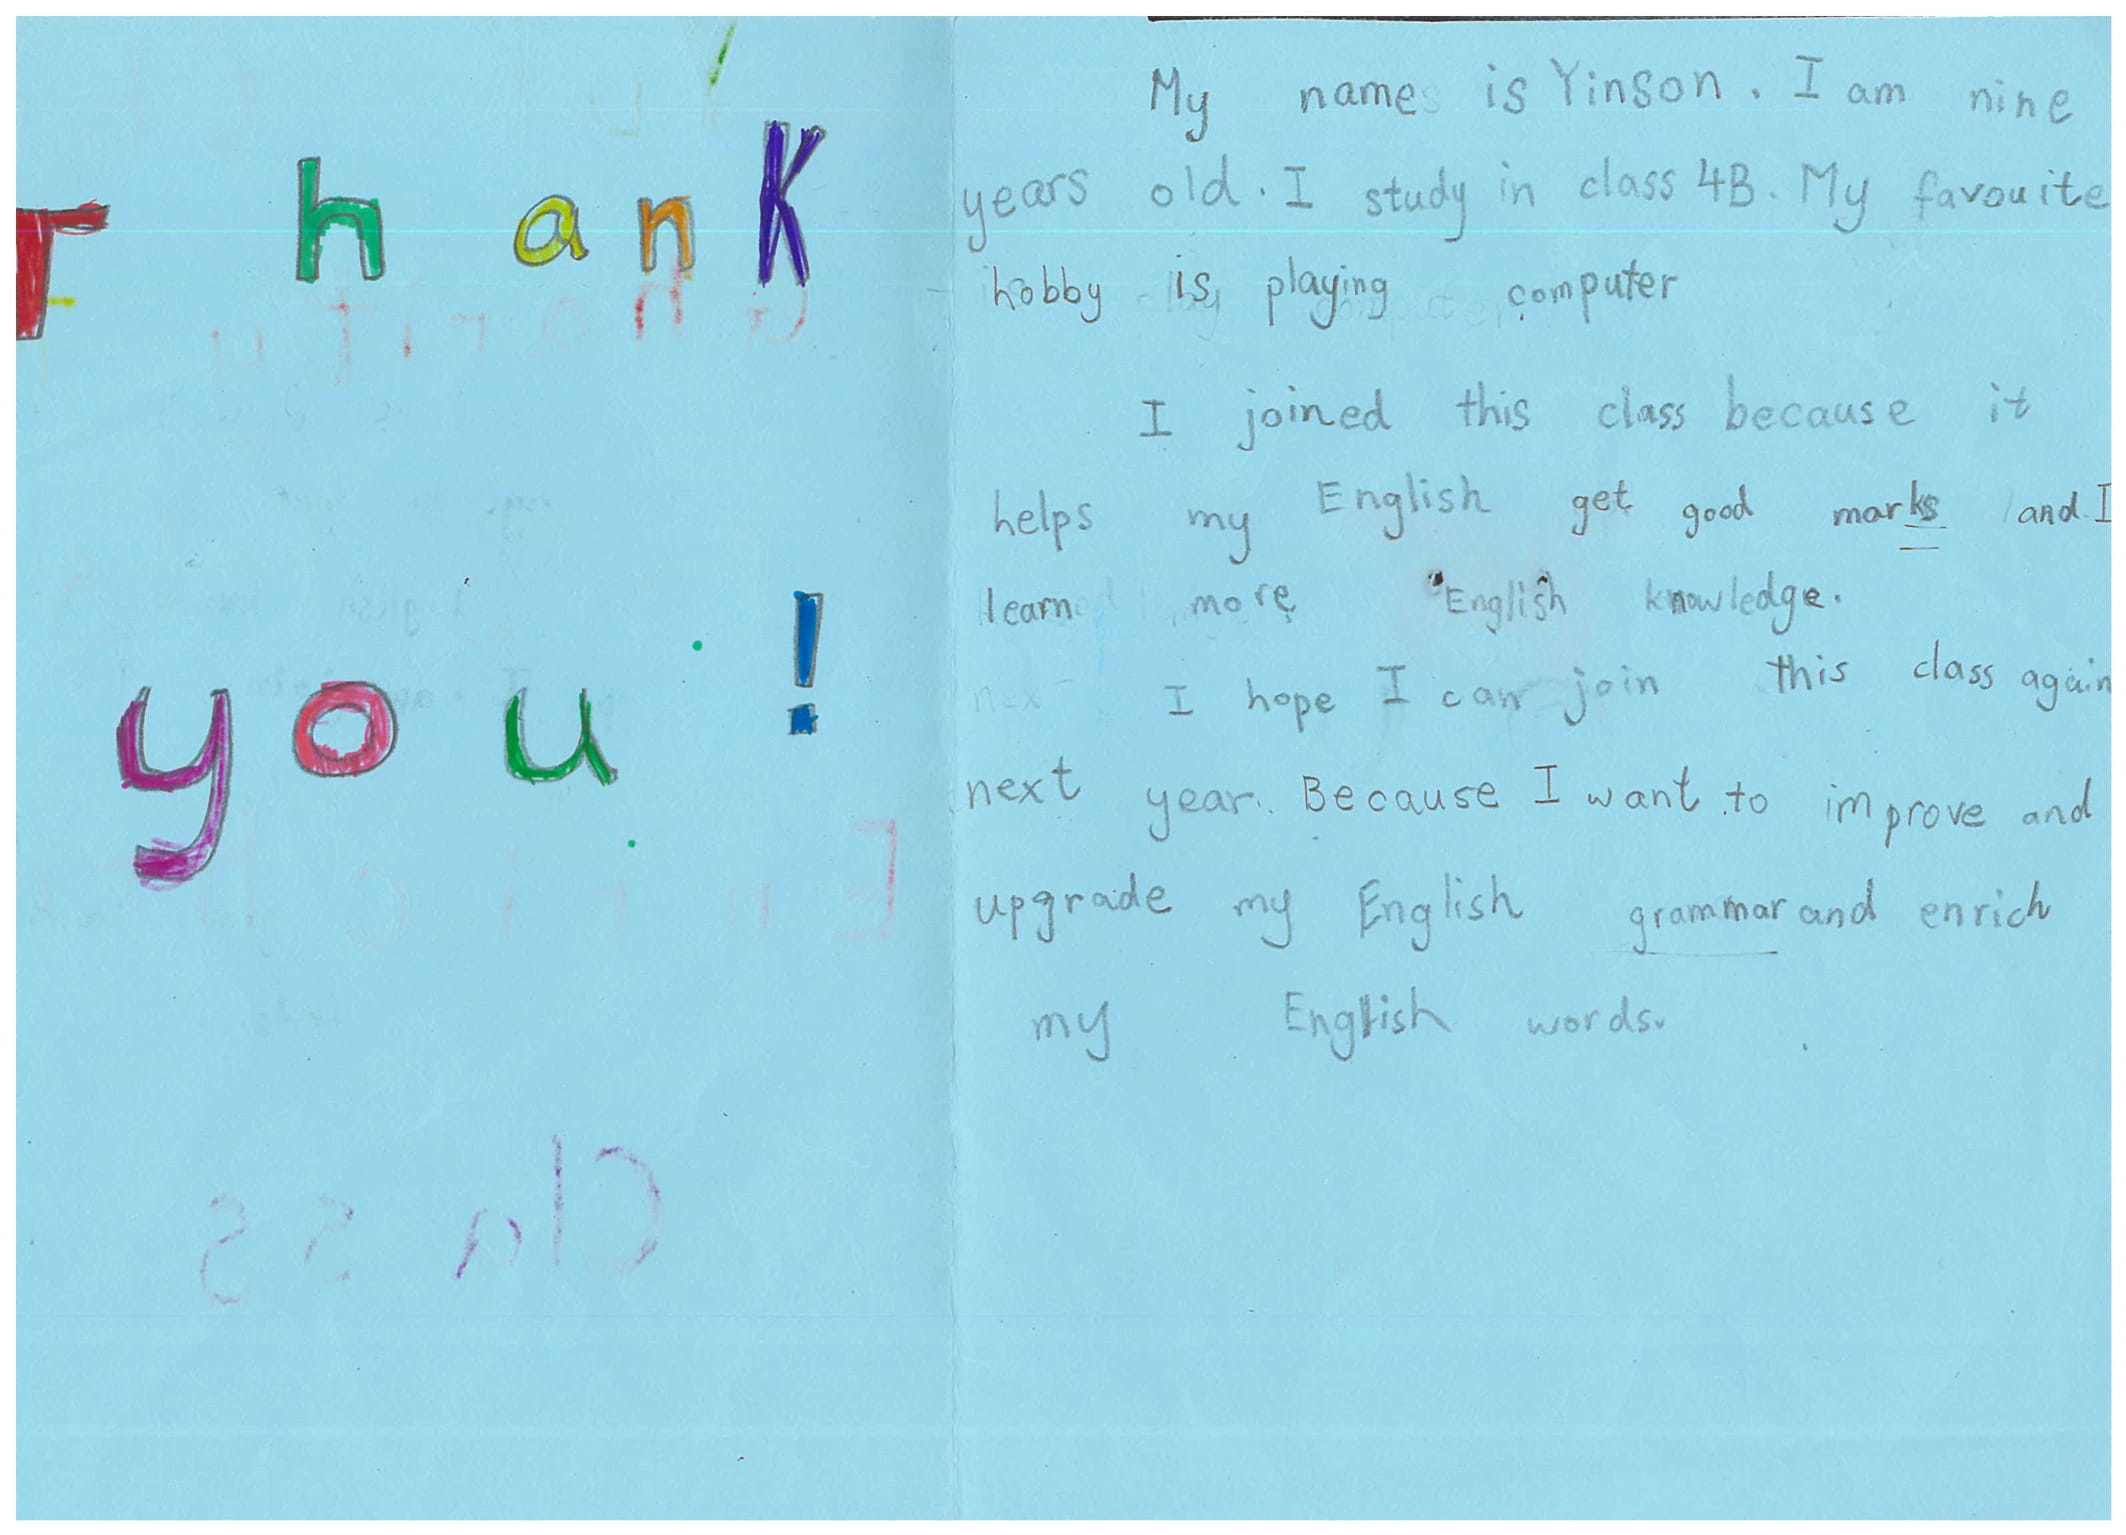 Thank
you!
My name is Yinson. I am nine
years old. I study in class 4B. My favouite
hobby is playing computer
I joined this class because it
helps my English get good marks and I
learn more English knowledge.
I hope I can join this class again
next year. Because I want to improve and
upgrade my English grammar and enrich
my English words.